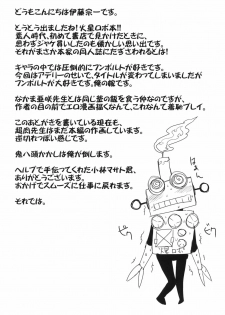 どうもこんにちは伊藤宗一です。
とうとう出ましたね!火星ロボ本!!
素人時代、初めて書店で見かけたときに、
思わずジャケ買いしたのも懐かしい思い出です。
それがまさか本家の同人誌にださせてもらえるとは。
キャラの中では圧倒的にワンボルトが好きです。
今回はアデリーのせいで、タイトルが変わってしまいましたが
ワンボルトが大好きです。俺の嫁です。
なかま亜咲先生とは同じ釜の飯を食う仲なのですが、
作者の目の前でエロ漫画描くなんて、こなんて羞恥プレイ。
このあとがきを書いている現在も、
先生はまだ本編の作画しています。
逆切れっぽい感じです。
鬼八頭かかしは俺が倒します。
ヘルプで手伝ってくれた小林マサト君、
ありがとうございます。
おかげでスムーズに仕事に戻れます。
それでは。